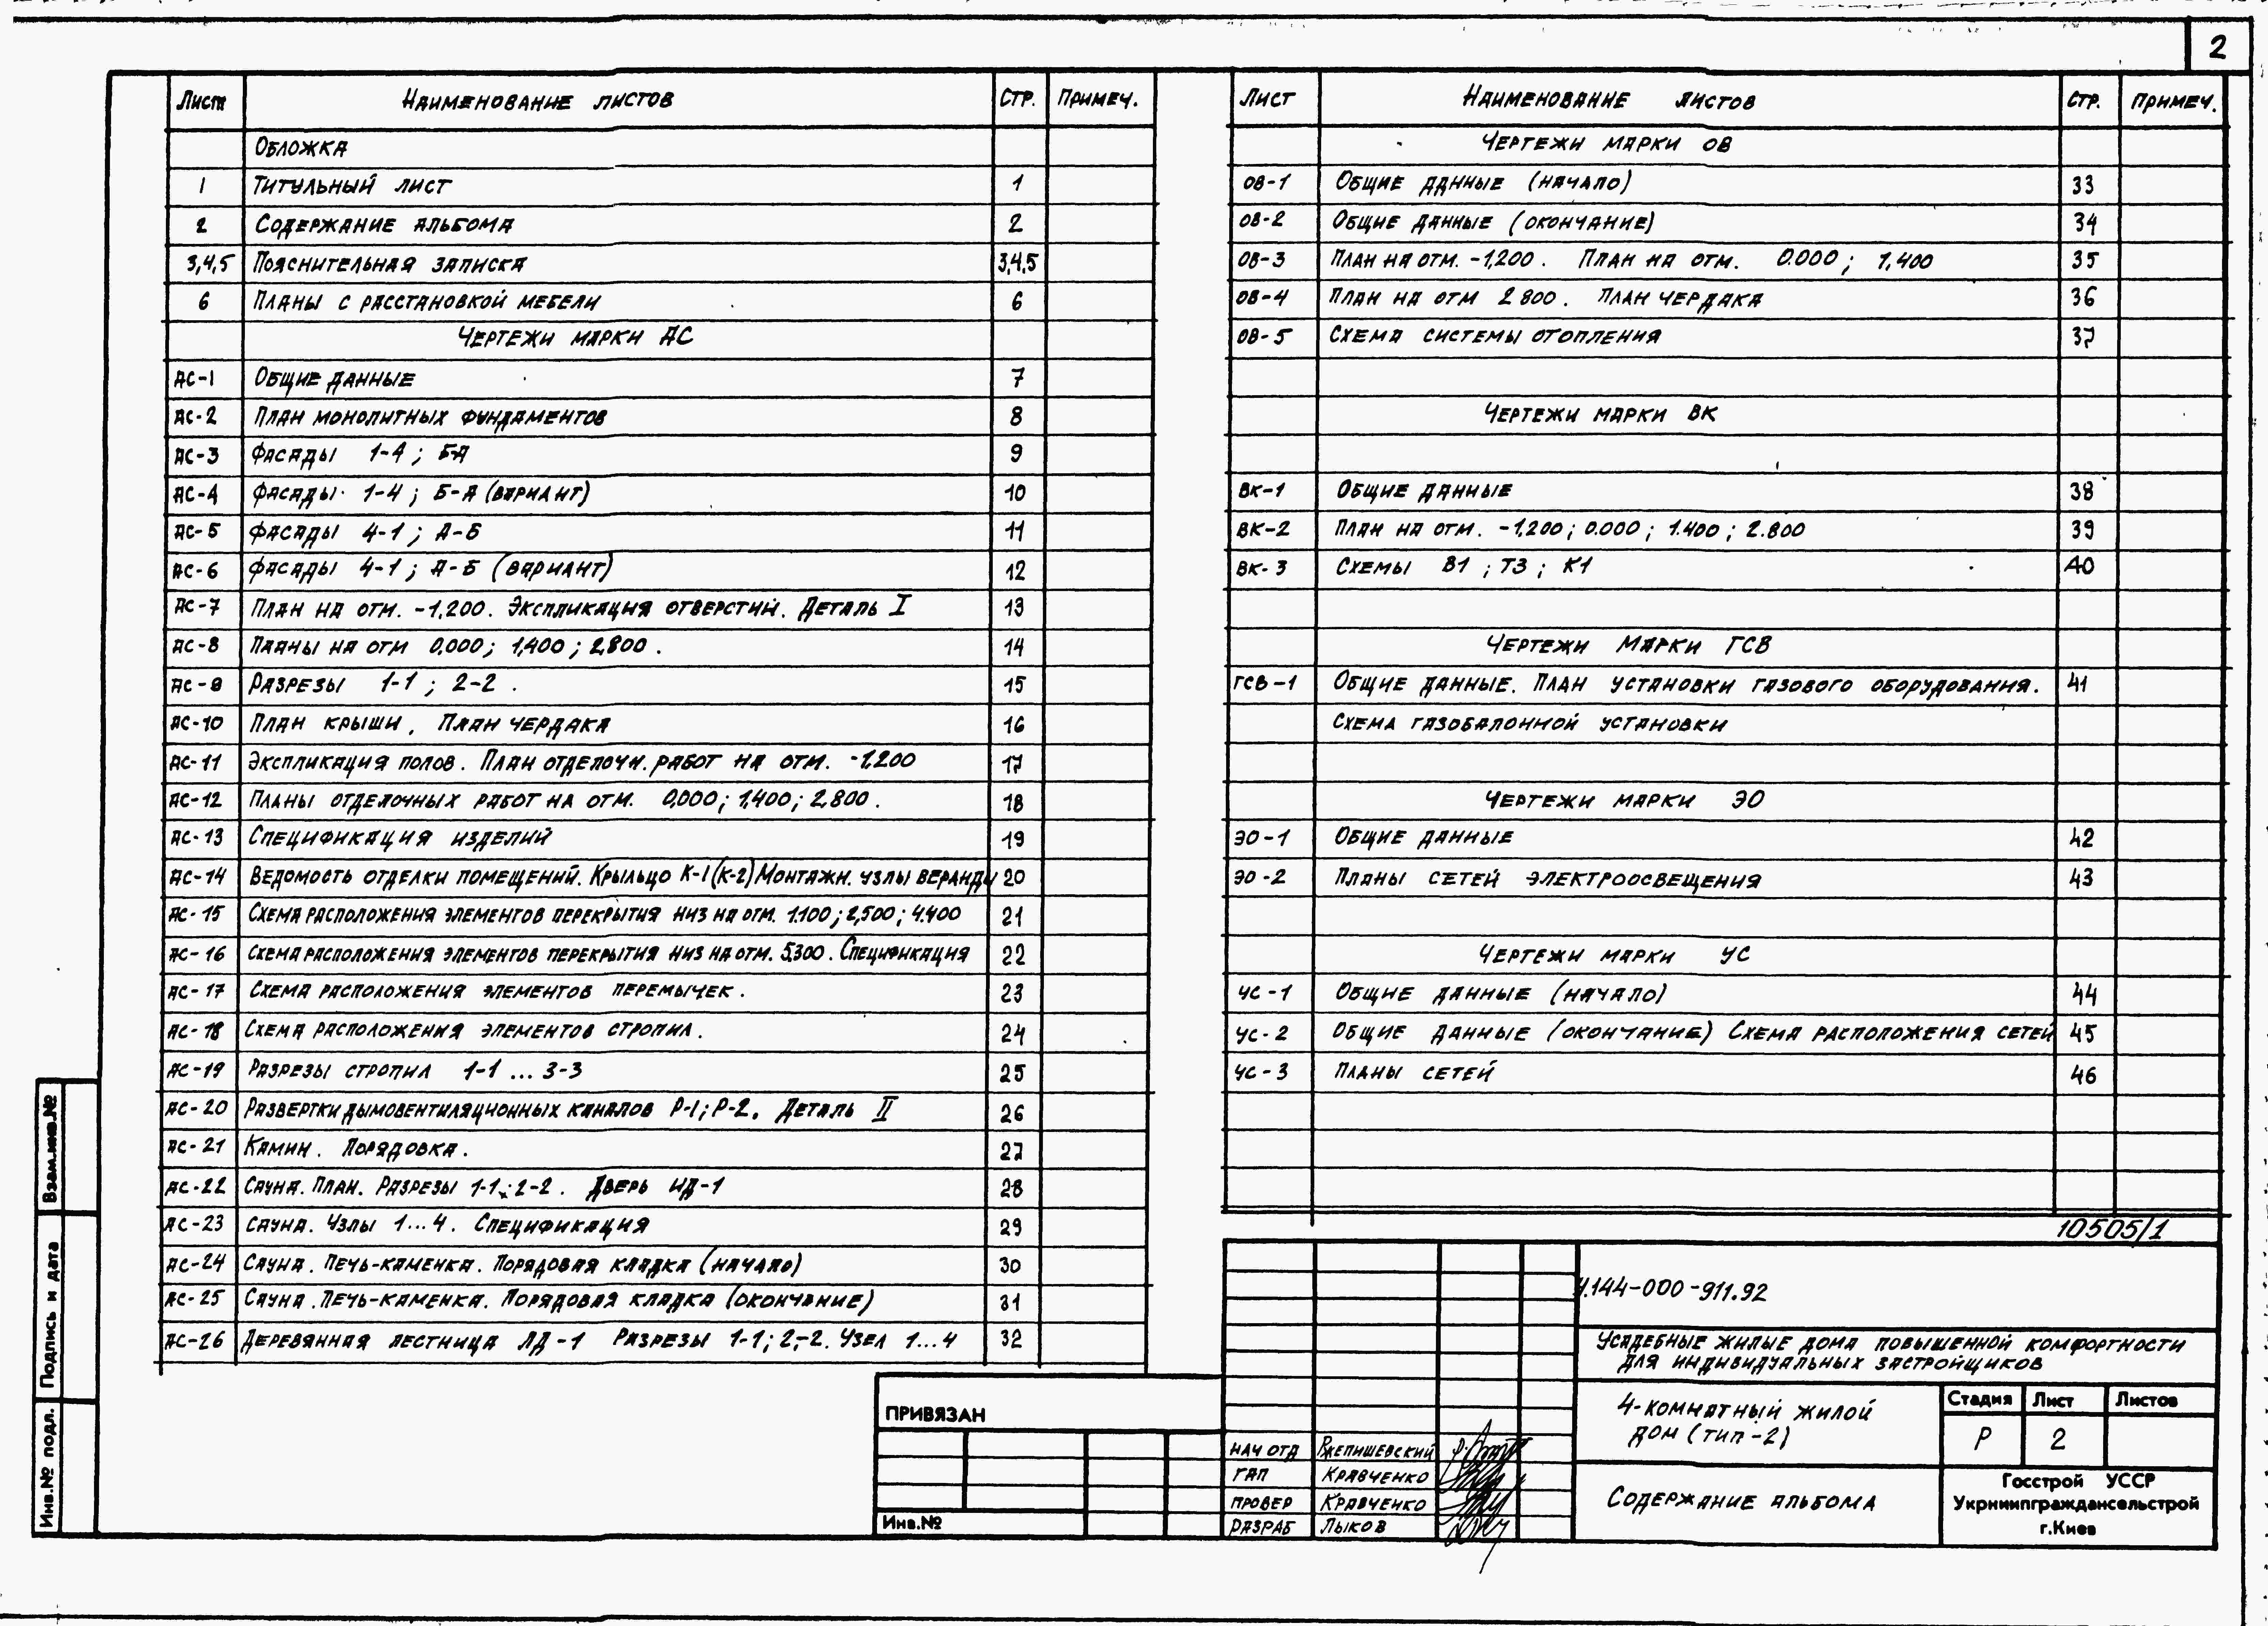 2
Лист Наименование листов Стр. Примеч.
Обложка
1 Титульный лист 1
2 Содержание альбома 2
3,4,5 Пояснительная записка 3,4,5
6 Планы с расстановкой мебели 6
Чертежи марки АС
АС-1 Общие данные 7
АС-2 План монолитных фундаментов 8
АС-3 Фасады 1-4; Б-А 9
АС-4 Фасады 1-4; Б-А (вариант) 10
АС-5 Фасады 4-1; А-Б 11
АС-6 Фасады 4-1; А-Б (вариант) 12
АС-7 План на отм. -1,200. Экспликация отверстий. Деталь I 13
АС-8 Планы на отм 0,000; 1,400; 2,800. 14
АС-9 Разрезы 1-1; 2-2. 15
АС-10 План крыши. План чердака 16
АС-11 Экспликация полов. План отделочн. работ на отм. -1.200 17
АС-12 Планы отделочных работ на отм. 0,000; 1,400; 2,800. 18
АС-13 Спецификация изделий 19
АС-14 Ведомость отделки помещений. Крыльцо К-1(К-2) Монтажн. узлы веранды 20
АС-15 Схема расположения элементов перекрытия низ на отм. 1.100; 2,500; 4.400 21
АС-16 Схема расположения элементов перекрытия низ на отм. 5.300. Спецификация 22
АС-17 Схема расположения элементов перемычек. 23
АС-18 Схема расположения элементов стропил. 24
АС-19 Разрезы стропил 1-1 ... 3-3 25
АС-20 Развертки дымовентиляционных каналов Р-1; Р-2. Деталь II 26
АС-21 Камин. Порядовка. 27
АС-22 Сауна. План. Разрезы 1-1; 2-2. Дверь ИД-1 28
АС-23 Сауна. Узлы 1...4. Спецификация 29
АС-24 Сауна. Печь-каменка. Порядовая кладка (начало) 30
АС-25 Сауна. Печь-каменка. Порядовая кладка (окончание) 31
АС-26 Деревянная лестница ЛД-1 Разрезы 1-1; 2-2. Узел 1...4 32
Лист Наименование листов Стр. Примеч.
Чертежи марки ОВ
ОВ-1 Общие данные (начало) 33
ОВ-2 Общие данные (окончание) 34
ОВ-3 План на отм. -1,200. План на отм. 0.000; 1,400 35
ОВ-4 План на отм 2 800. План чердака 36
ОВ-5 Схема системы отопления 37
Чертежи марки ВК
ВК-1 Общие данные 38
ВК-2 План на отм. -1,200; 0.000; 1.400; 2.800 39
ВК-3 Схемы В1; Т3; К1 40
Чертежи марки ГСВ
ГСВ-1 Общие данные. План установки газового оборудования. 41
Схема газобалонной установки
Чертежи марки ЭО
ЭО-1 Общие данные 42
ЭО-2 Планы сетей электроосвещения 43
Чертежи марки УС
УС-1 Общие данные (начало) 44
УС-2 Общие данные (окончание) Схема расположения сетей 45
УС-3 Планы сетей 46
10505/1
У.144-000-911.92
Усадебные жилые дома повышенной комфортности
для индивидуальных застройщиков
4-комнатный жилой
дом (тип-2)
Стадия Лист Листов
Р 2
Содержание альбома
Госстрой УССР
Укрниипграждансельстрой
г.Киев
Нач отд Ржепишевский
ГАП Кравченко
Провер Кравченко
Разраб Лыков
ПРИВЯЗАН
Инв.№
Взам.инв.№
Подпись и дата
Инв.№ подл.